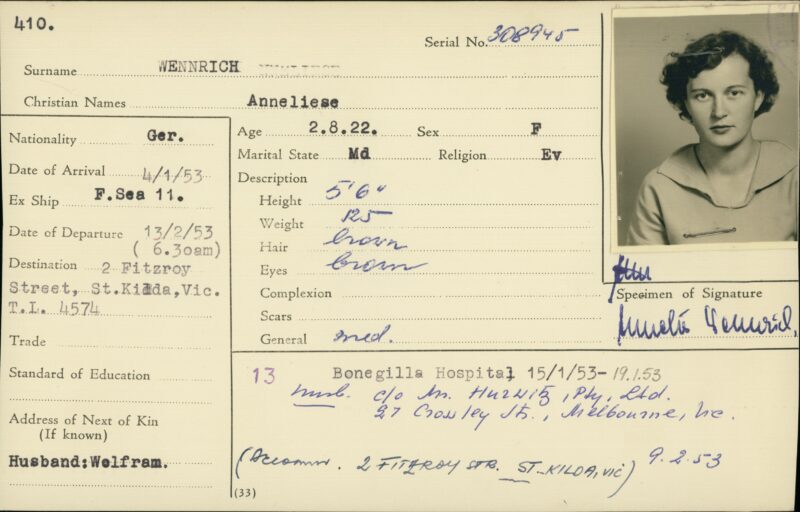 410.
Serial No. 308945
Surname WENNRICH
Christian Names Anneliese
Nationality Ger.
Date of Arrival 4/1/53
Ex Ship F.Sea 11.
Date of Departure 13/2/53
( 6.30am)
Destination 2 Fitzroy
Street, St.Kilda,Vic.
T.L. 4574
Trade
Standard of Education
Address of Next of Kin
(If known)
Husband:Wolfram.
Age 2.8.22. Sex F
Marital State Md Religion Ev
Description
Height 5'6"
Weight 125
Hair brown
Eyes brown
Complexion
Scars
General med.
Specimen of Signature
13 Bonegilla Hospital 15/1/53- 19.1.53
c/o M. Hurwitz, Pty, Ltd.
27 Crossley Str., Melbourne, Vic.
(Accomm. 2 FITZROY STR. ST-KILDA, VIC) 9.2.53
(33)